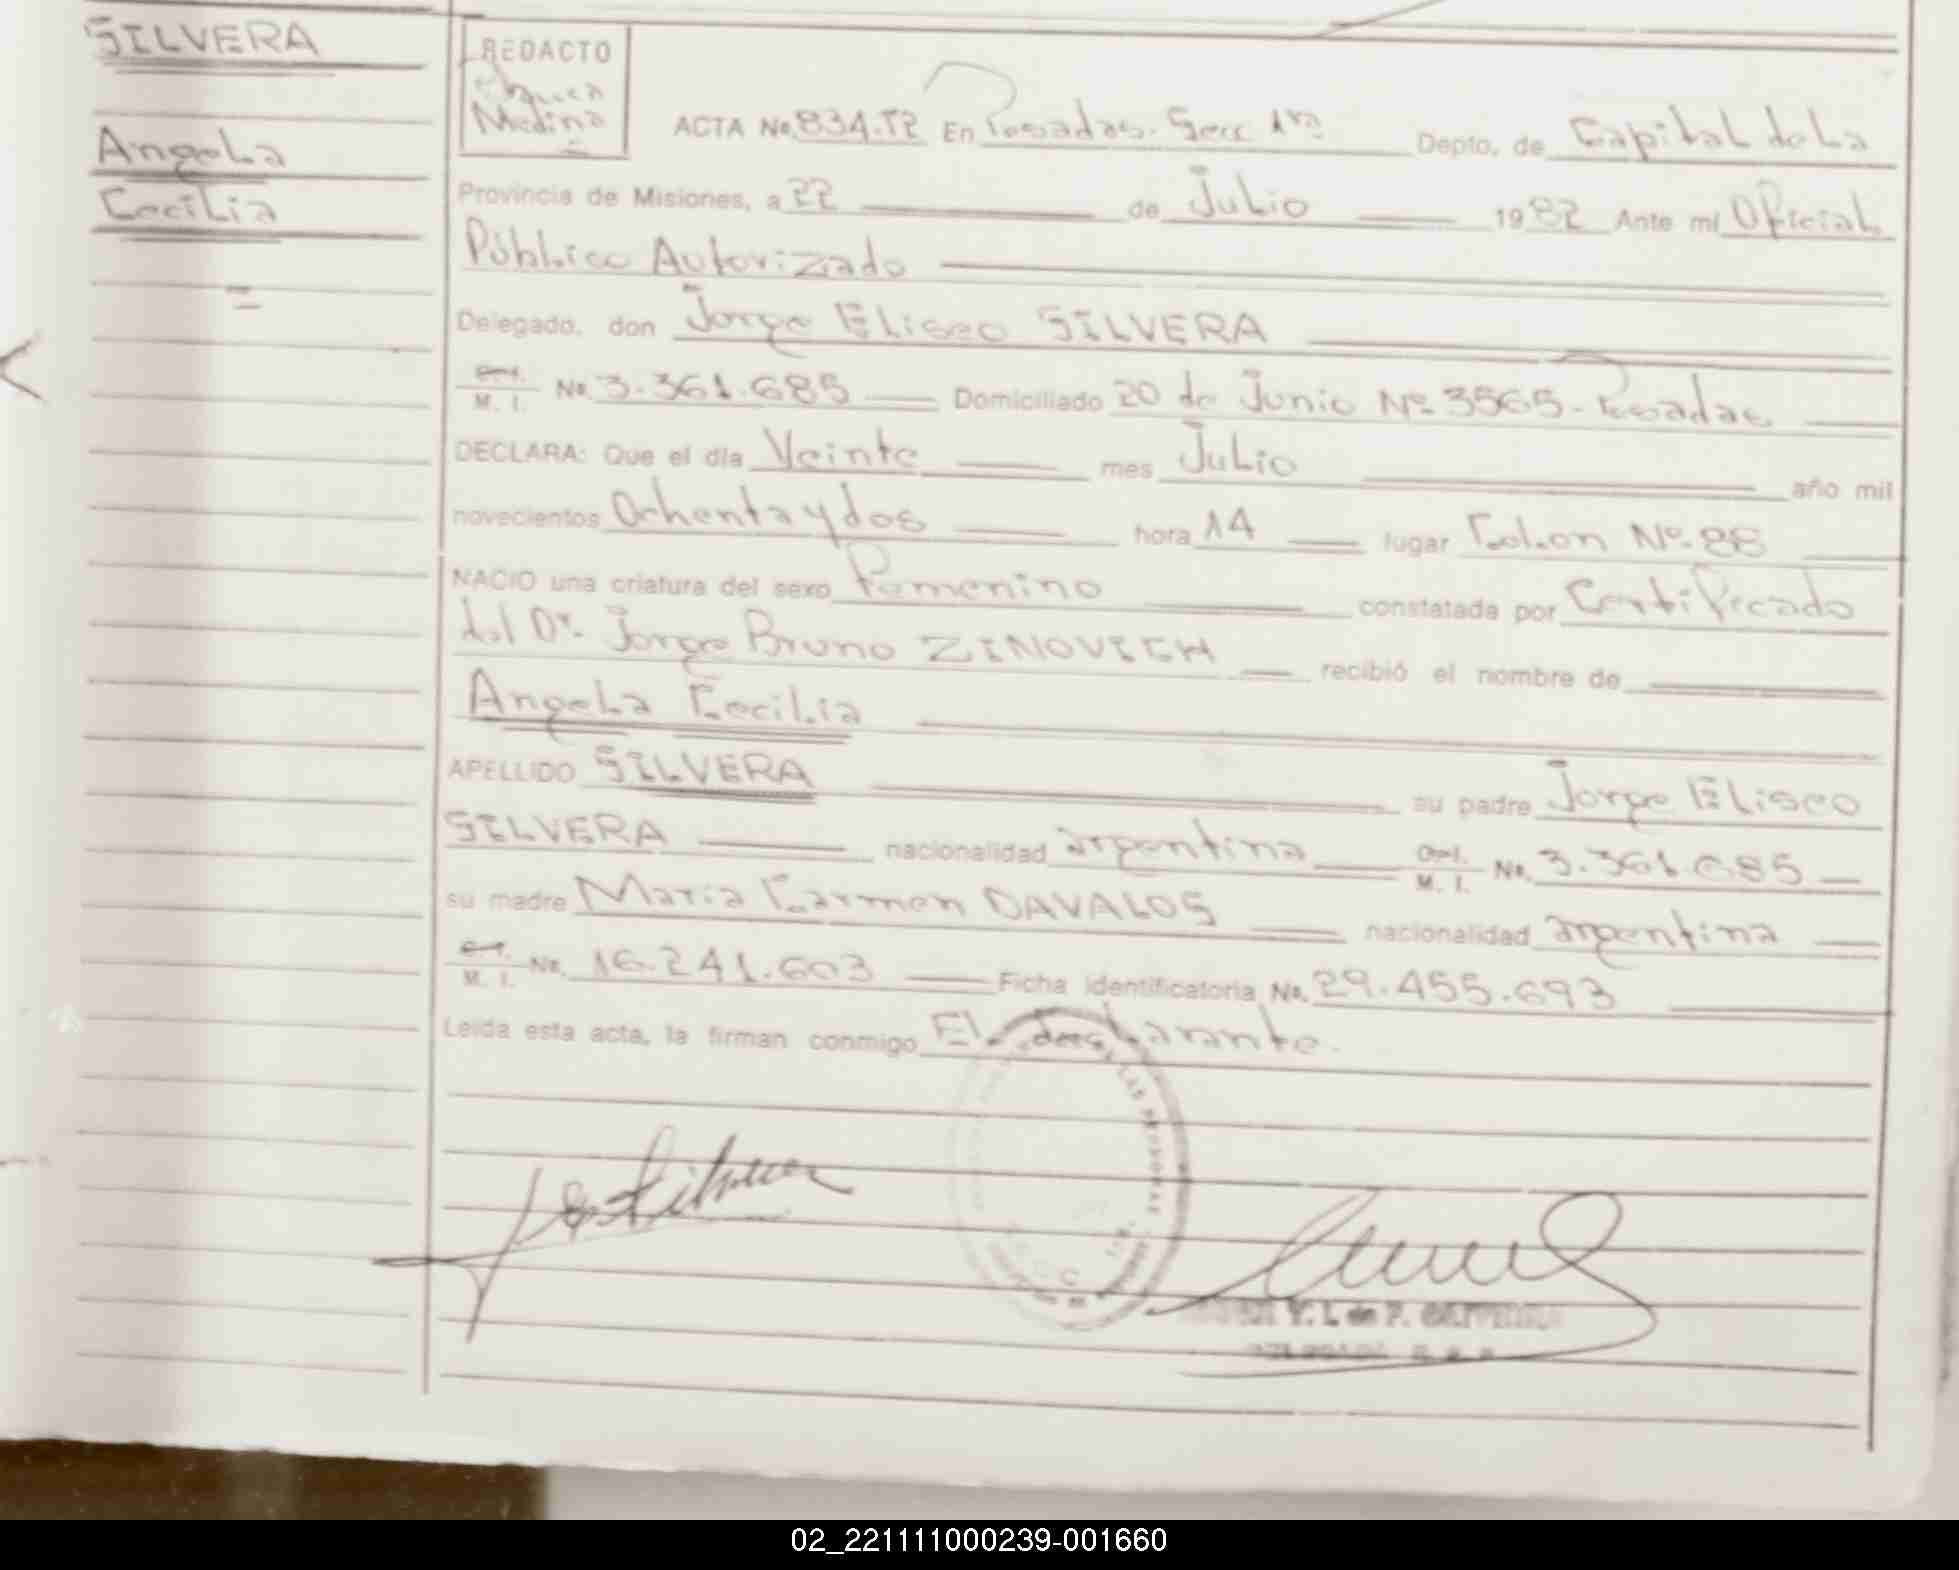 SILVERA
Angela
Cecilia
REDACTO
Medina
ACTA No. 834.T2 En Posadas. Secc 1ra Depto. de Capital de La
Provincia de Misiones, a 22 de Julio 1982 Ante mí Oficial
Público Autorizado
Delegado, don Jorge Eliseo SILVERA
M. I. No. 3.361.685 Domiciliado 20 de Junio Nº 3565 - Posadas
DECLARA: Que el día Veinte mes Julio año mil
novecientos Ochenta y dos hora 14 lugar Colon Nº 88
NACIO una criatura del sexo Femenino constatada por Certificado
del Dr. Jorge Bruno ZINOVICH recibió el nombre de
Angela Cecilia
APELLIDO SILVERA su padre Jorge Eliseo
SILVERA nacionalidad argentina M. I. No. 3.361.685
su madre Maria Carmen DAVALOS nacionalidad argentina
M. I. No. 16.241.603 Ficha identificatoria No. 29.455.693
Leída esta acta, la firman conmigo El declarante.
LAS PERSONAS
Y. I. de P.
02_221111000239-001660